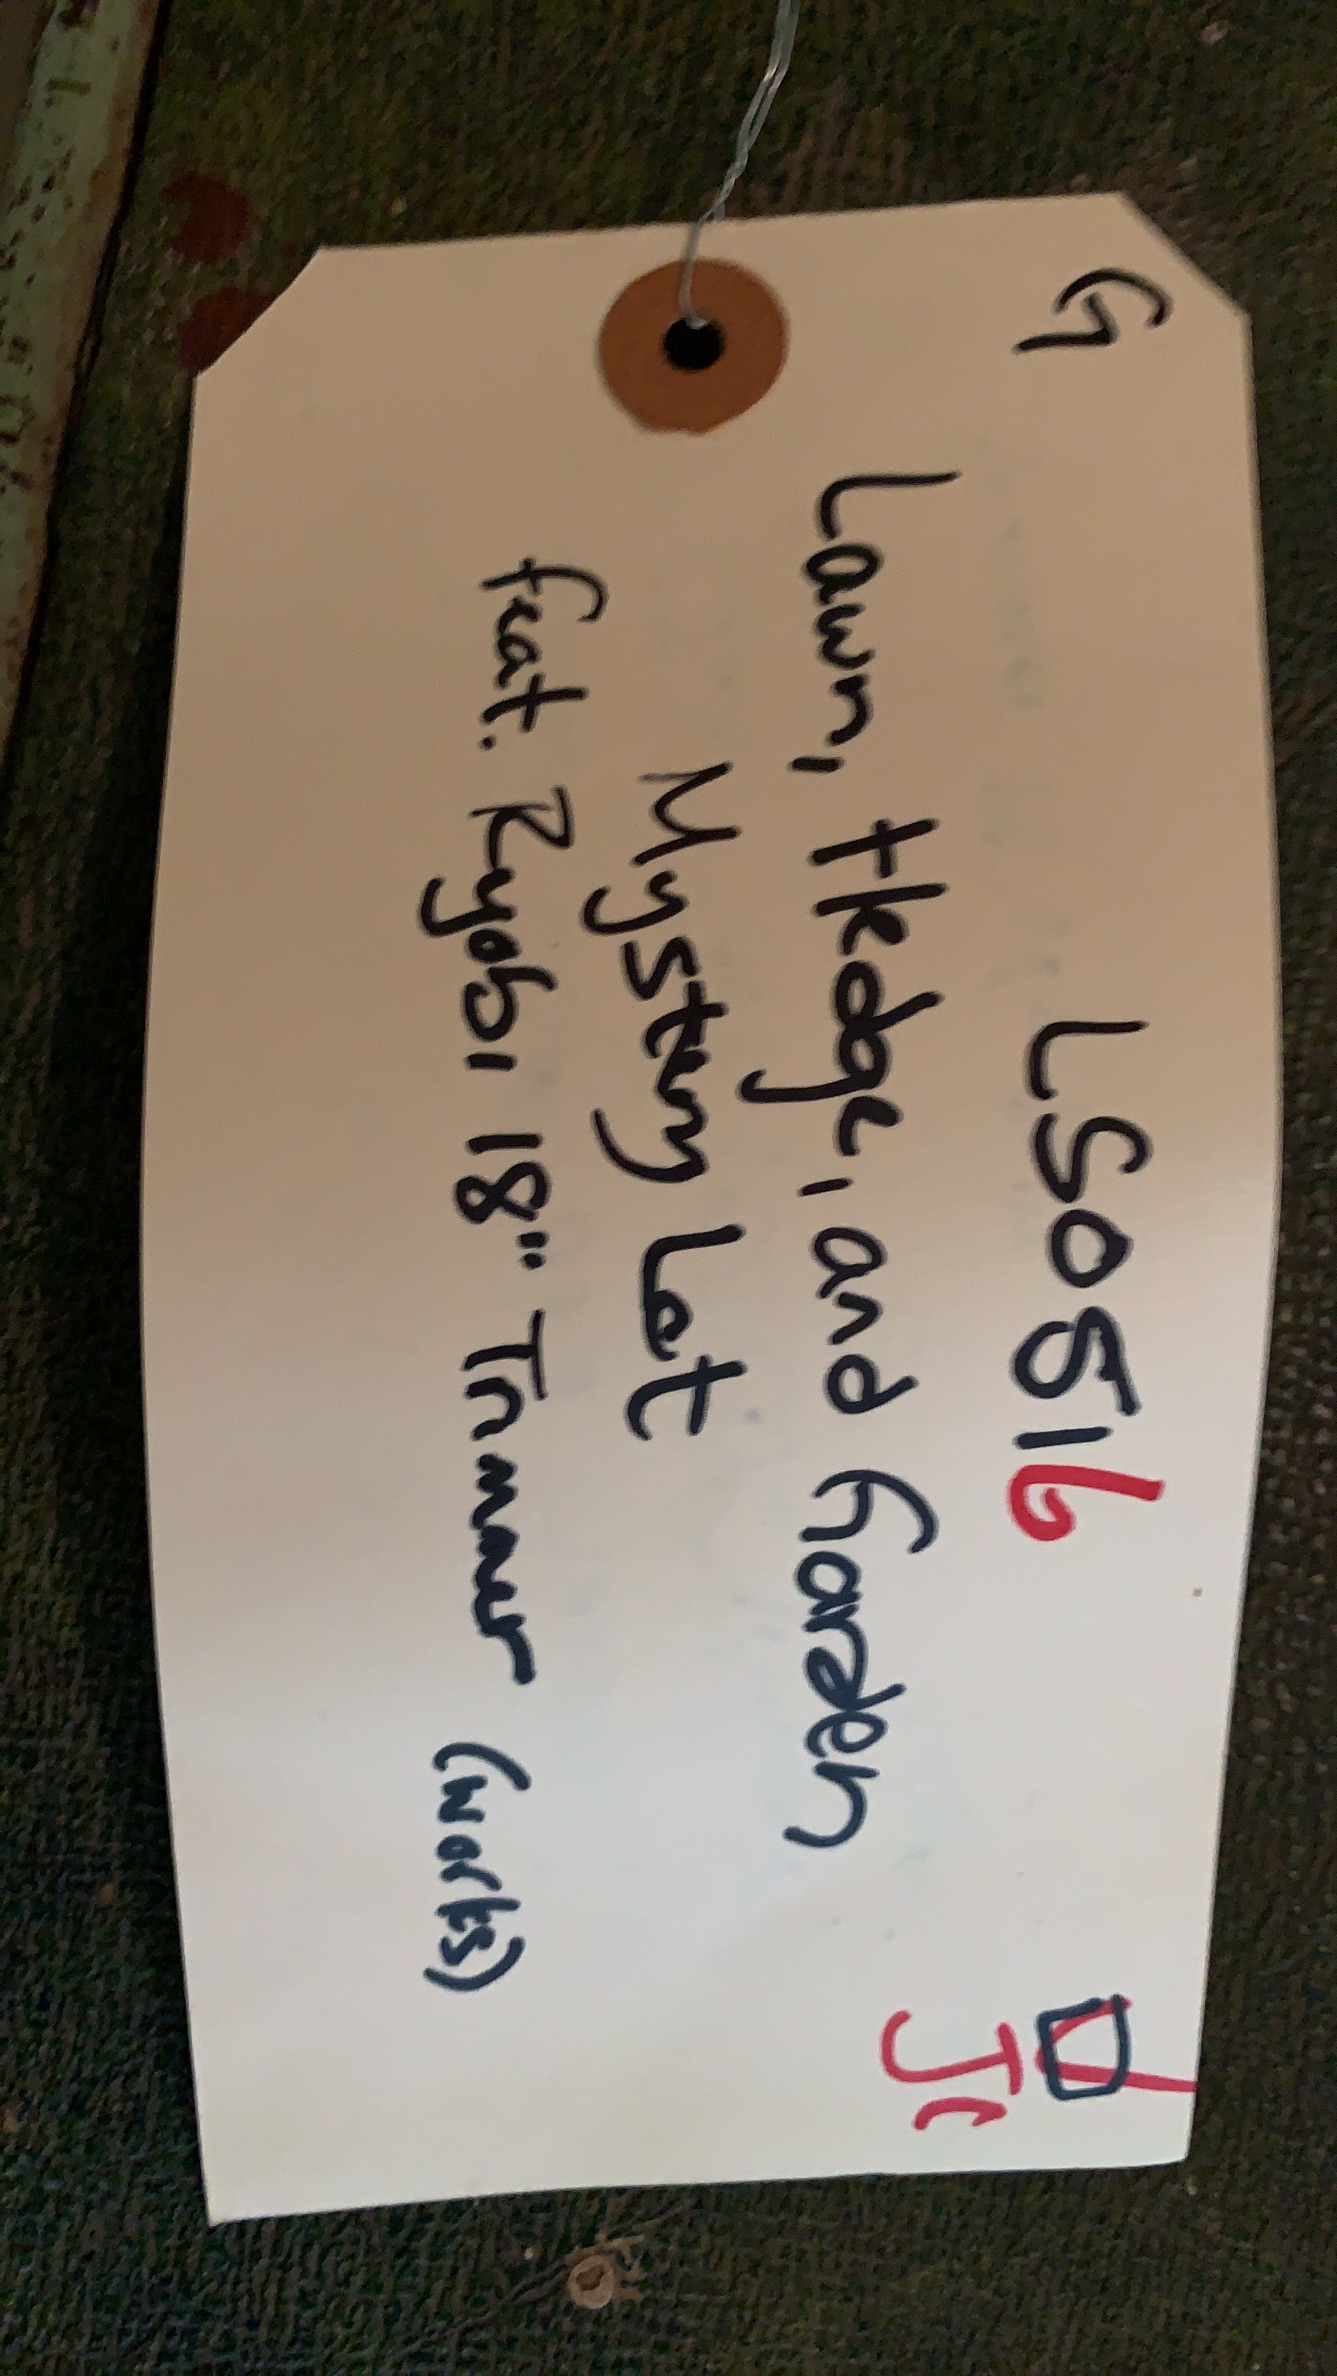 G
LS0516
Lawn, Hedge, and Garden
Mystery Lot
feat. Ryobi 18" Trimmer (works)
JC